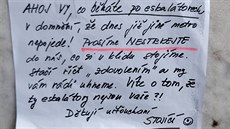 AHOJ VY, co běháte po eskalátorech
v domnění, že dnes již jiné metro
nepojede! PROSÍME NESTRKEJTE
do nás, co si v klidu stojíme.
Stačí říct „s dovolením" a my
vám rádi uhneme. Víte o tom, že
ty eskalátory nejsou vaše?!
Děkuji
STOJÍCÍ